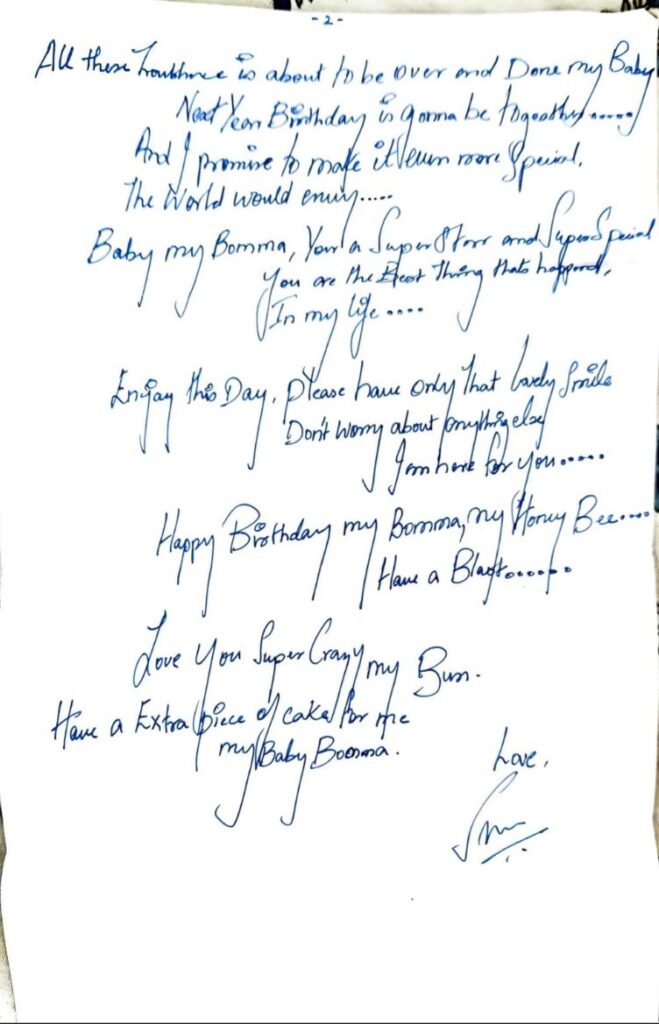 - 2 -
All these is about to be over and Done my Baby
Next Year Birthday is gonna be togeather......
And I promise to make it even more Special.
The World would envy.....
Baby my Bomma, Your a Super Starr and Super Special
You are the Best Thing thats happend,
In my life....
Enjoy this Day, please have only That lovely Smile
Don't worry about anything else
I am here for you.....
Happy Birthday my Bomma, my Honey Bee....
Have a Blast......
Love You Super Crazy my Bum.
Have a Extra piece of cake for me
my Baby Bomma.
Love,